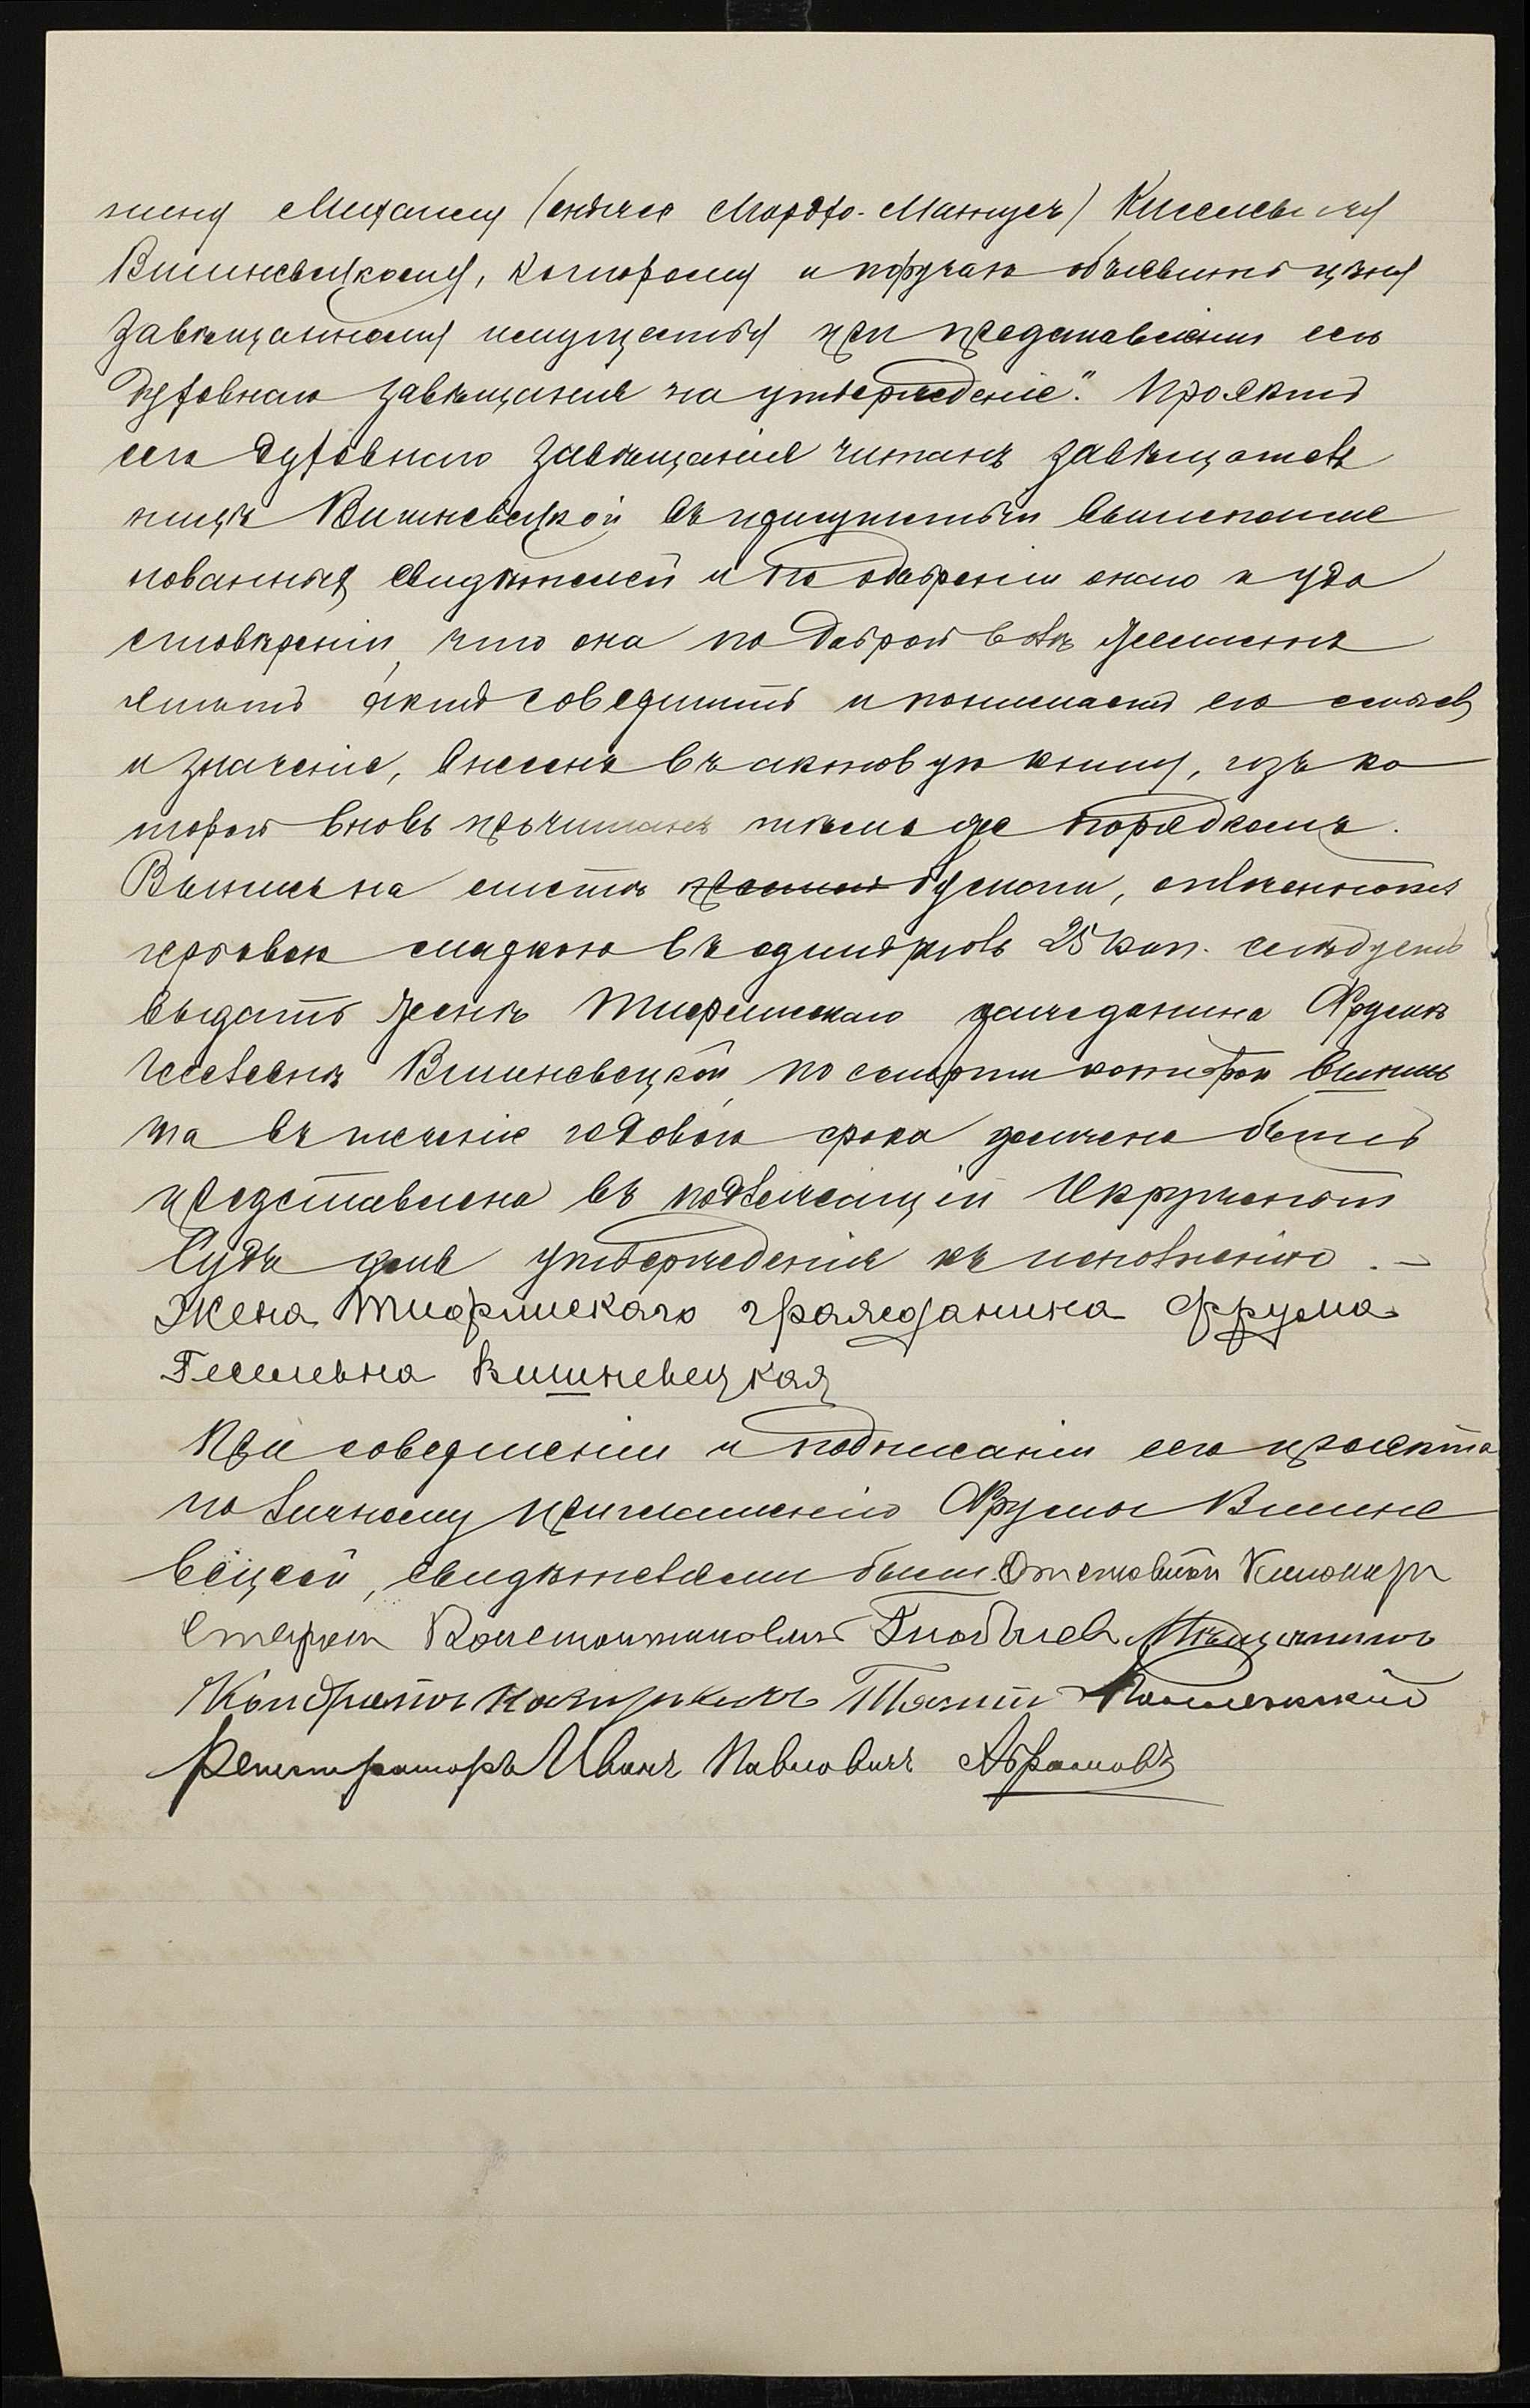 нину Михаилу (онъ же Мордко-Манусъ) Киселевичу
Вишневецкому, которому и поручаю объявить цѣну
завѣщанному имуществу при представленіи сего
духовнаго завѣщанія на утвержденіе". Проектъ
сего духовнаго завѣщанія читанъ завѣщатель
ницѣ Вишневецкой въ присутствіи вышепоиме
нованныхъ свидѣтелей и по одобреніи онаго и удо
стовѣреніи, что она по доброй волѣ желаетъ
актъ совершить и понимаетъ его смыслъ
и значеніе, внесенъ въ актовую книгу, изъ ко
торой вновь прочитанъ тѣмъ же порядкомъ.
Выпись на листѣ простой бумаги, оплаченномъ
гербовою маркою въ одинъ рубль 25 коп. слѣдуетъ
выдать женѣ Тифлисскаго гражданина Фрумѣ
Геселевнѣ Вишневецкой, по смерти которой выпись
та въ теченіе годового срока должна быть
представлена въ подлежащій Окружной
Судъ для утвержденія къ исполненію. —
Жена Тифлискаго гражданина Фрума
Геселевна Вишневецкая
При совершеніи и подписаніи сего проекта
по личному приглашенію Фрумы Вишне
вецкой, свидѣтелями были: Отставной
Константиновичъ Мѣщанинъ
Регистраторъ Иванъ Павловичъ Абрамовъ